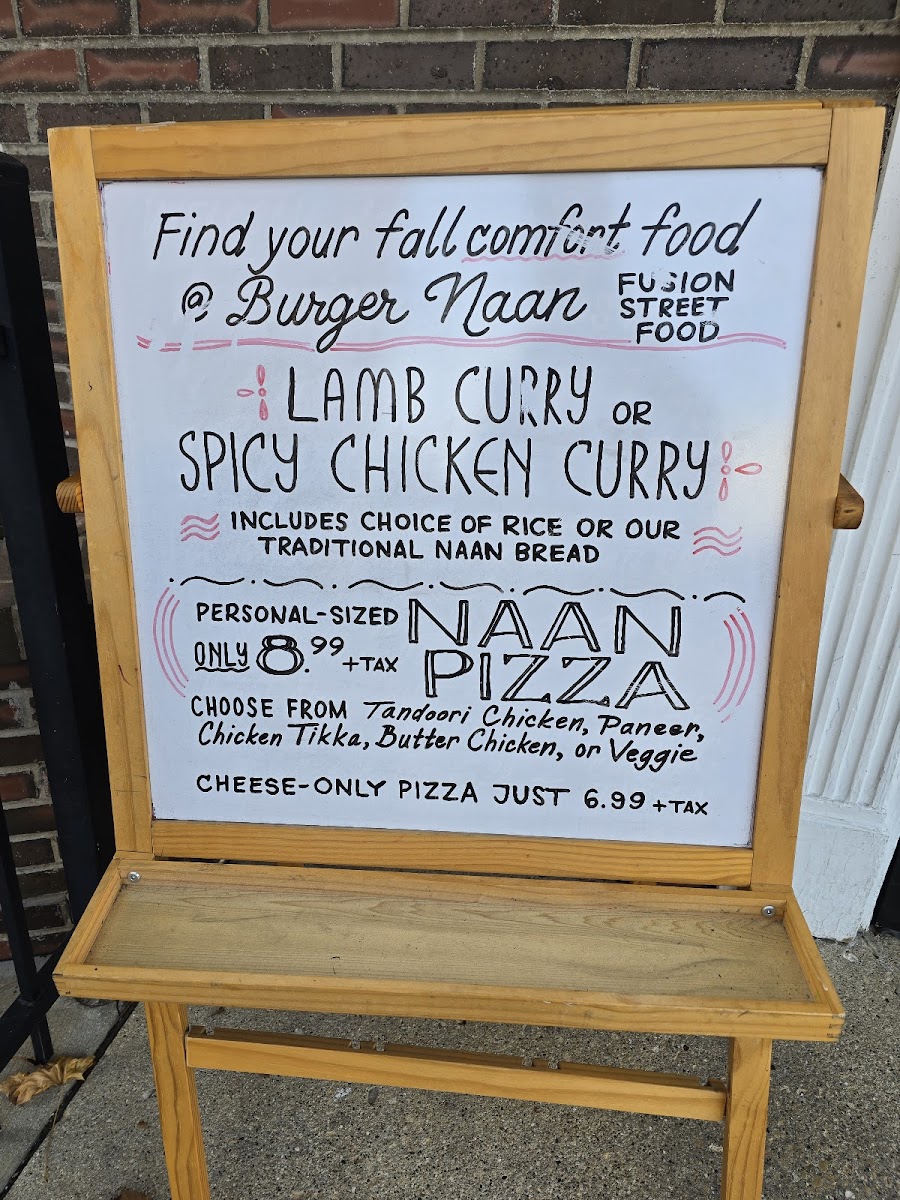 Find your fall comfort food
@ Burger Naan
FUSION
STREET
FOOD
LAMB CURRY OR
SPICY CHICKEN CURRY
INCLUDES CHOICE OF RICE OR OUR
TRADITIONAL NAAN BREAD
PERSONAL-SIZED
ONLY 8.99 +TAX
NAAN
PIZZA
CHOOSE FROM Tandoori Chicken, Paneer,
Chicken Tikka, Butter Chicken, or Veggie
CHEESE-ONLY PIZZA JUST 6.99 +TAX